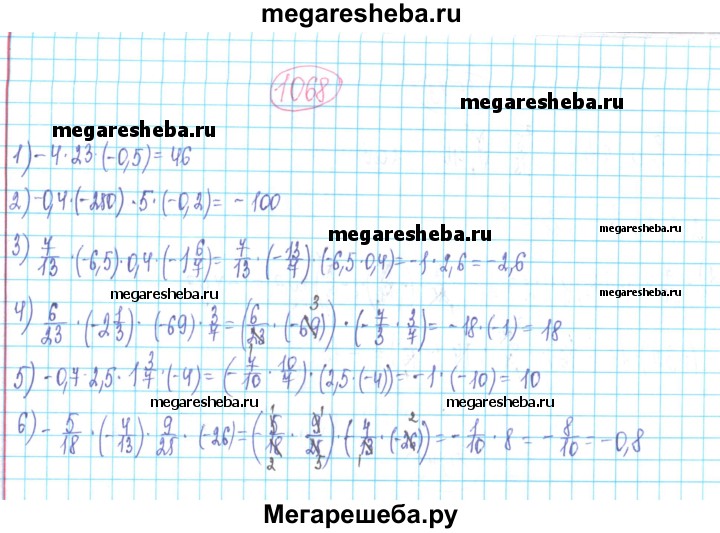 megaresheba.ru
1068
megaresheba.ru
megaresheba.ru
1) -4·23·(-0,5)=46
2) -0,4·(-250)·5·(-0,2)= -100
megaresheba.ru
megaresheba.ru
3) 7/13·(-6,5)·0,4·(-1 6/7)= 7/13·(-13/7)·(-6,5·0,4)=-1·2,6=-2,6
megaresheba.ru
megaresheba.ru
4) 6/23·(-2 1/3)·(-69)·3/7=(6/23·(-69))·(-7/3·3/7)= -18·(-1)=18
megaresheba.ru
5) -0,7·2,5·1 3/7·(-4)=(-7/10·10/7)·(2,5·(-4))=-1·(-10)=10
megaresheba.ru
megaresheba.ru
6) -5/18·(-4/13)·9/25·(-26)=(-5/18·9/25)·(4/13·(-26))=-1/10·8=-8/10=-0,8
Мегарешеба.ру